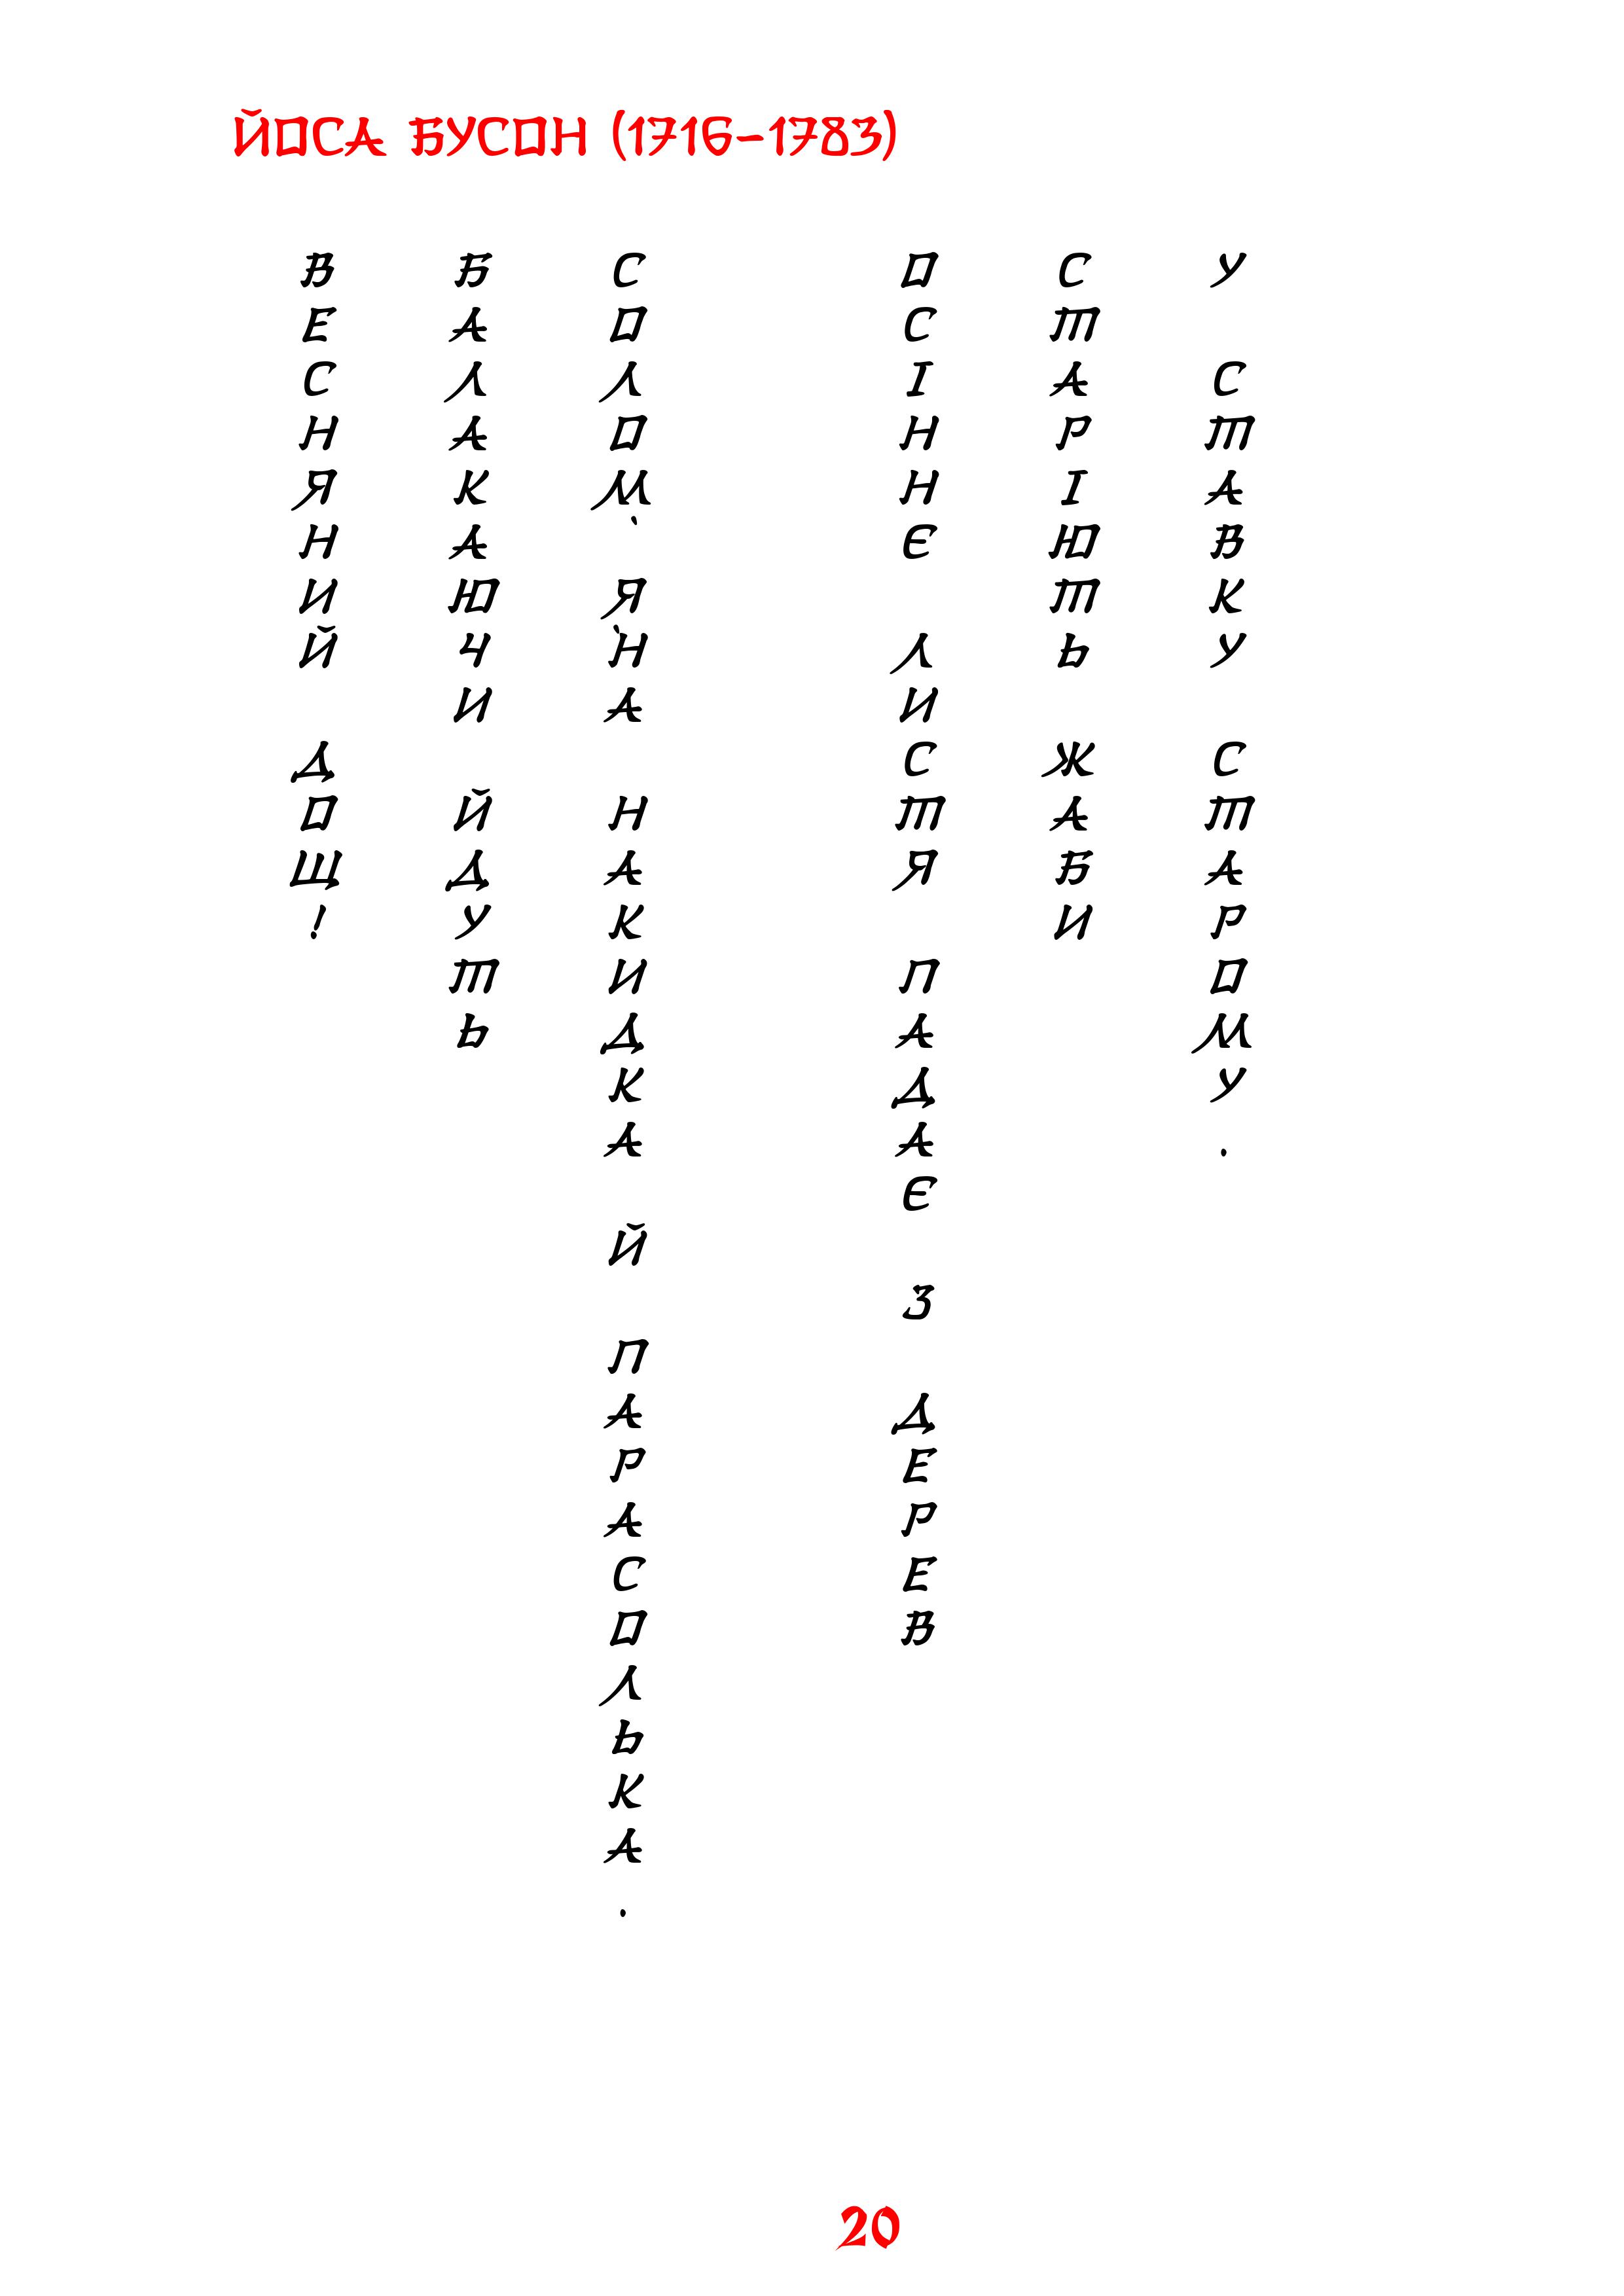 ЙОСА БУСОН (1716-1783)
ВЕСНЯНИЙ ДОЩ!
БАЛАКАЮЧИ ЙДУТЬ
СОЛОМ'ЯНА НАКИДКА Й ПАРАСОЛЬКА.
ОСІННЄ ЛИСТЯ ПАДАЄ З ДЕРЕВ
СТАРІЮТЬ ЖАБИ
У СТАВКУ СТАРОМУ.
20